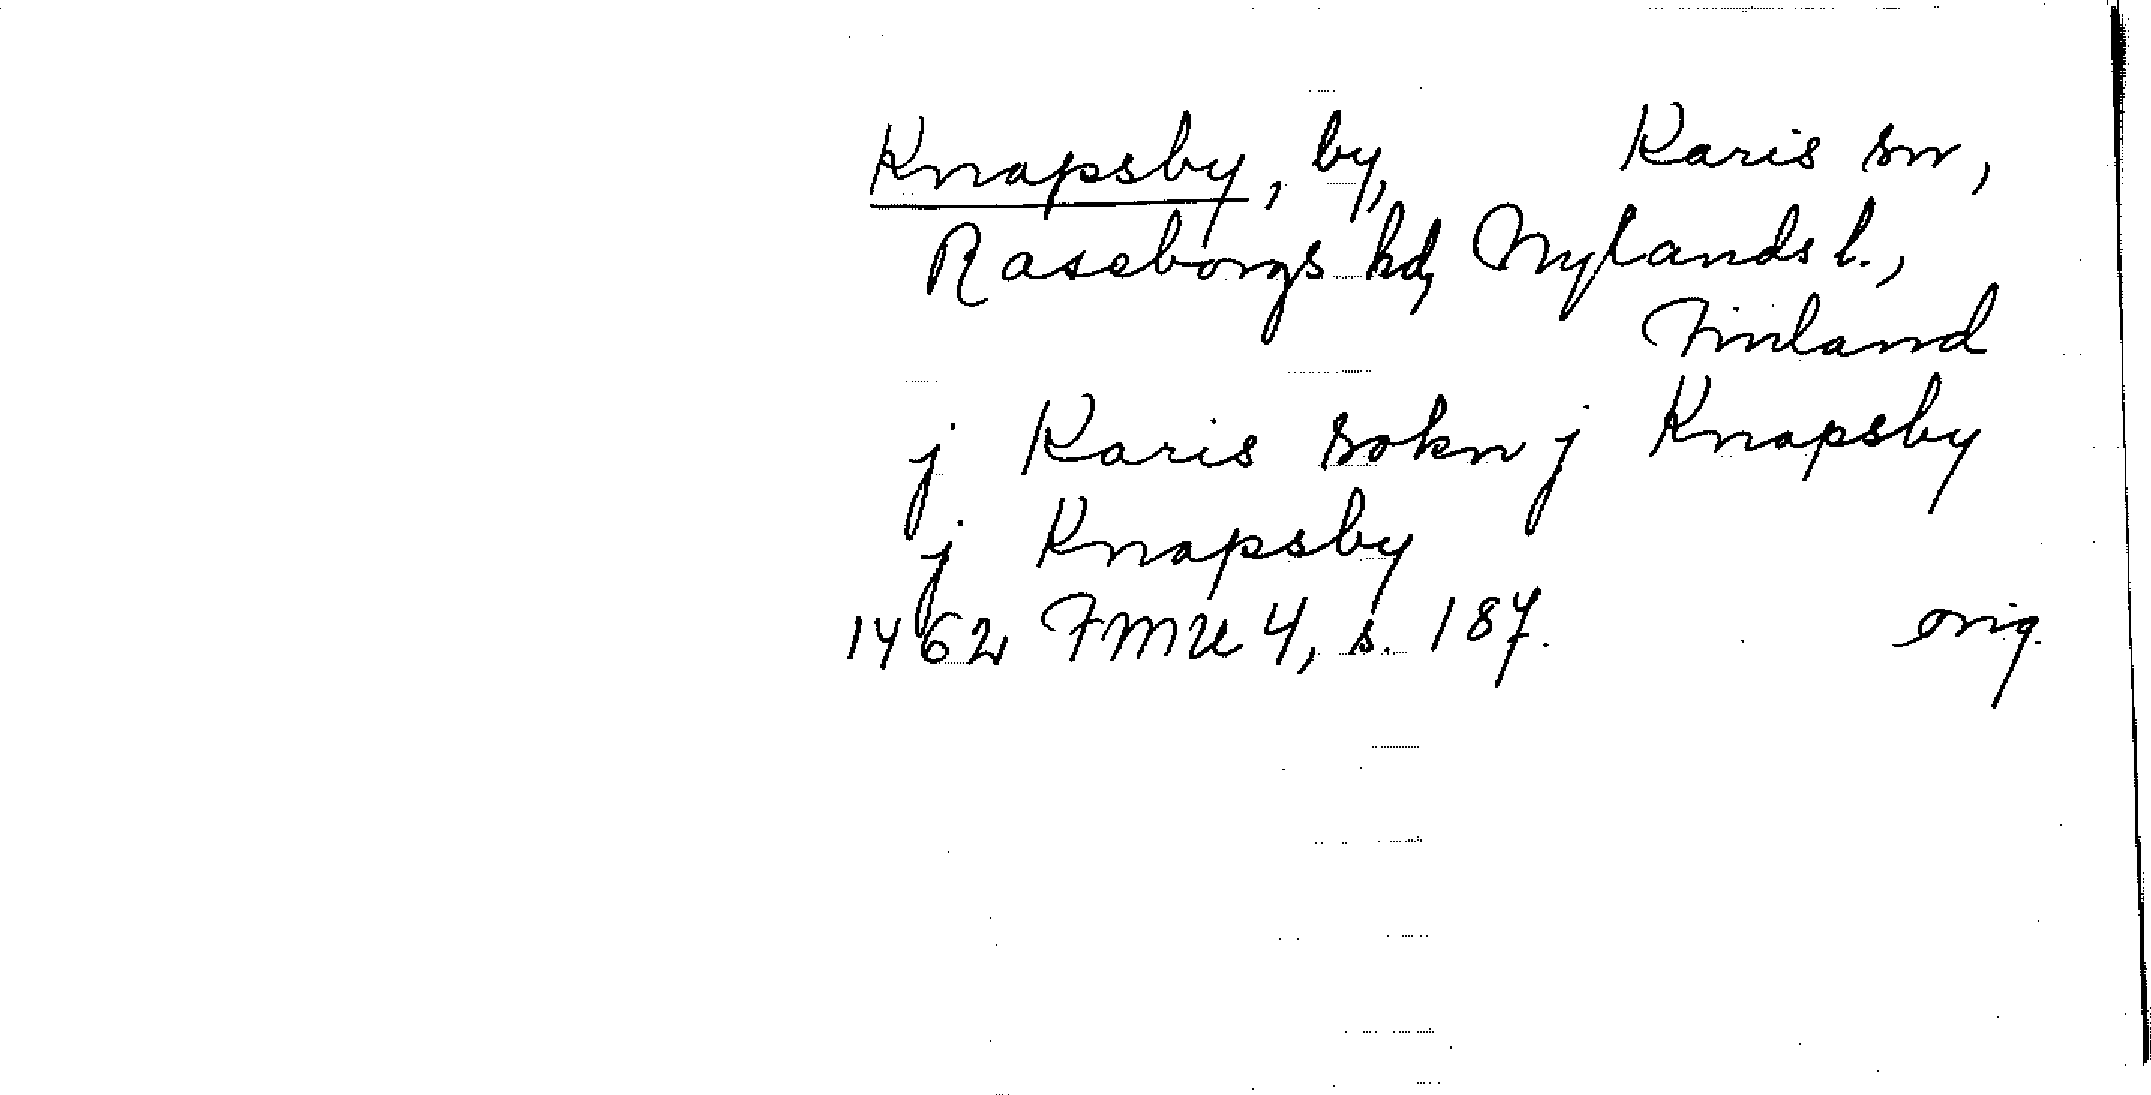 Knapsby, by, Karis sn,
Raseborgs hd, Nylands l.,
Finland
j Karis sokn j Knapsby
j Knapsby
1462 FMU 4, s. 187. orig.